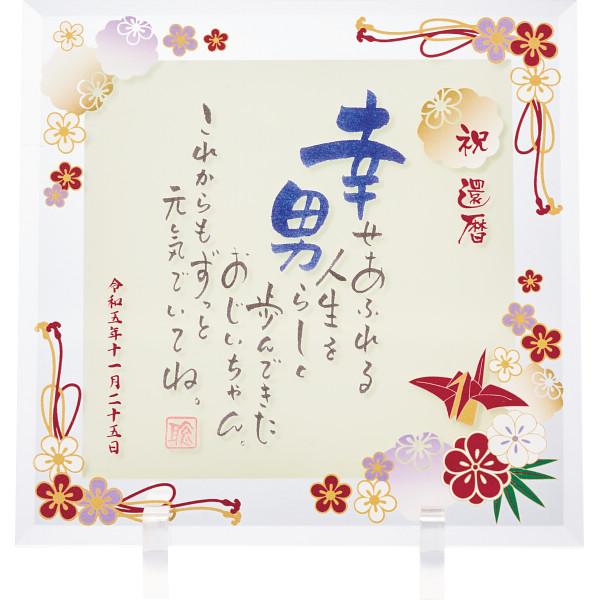 祝 還暦
幸せあふれる
人生を
男らしく
歩んできた
おじいちゃん。
これからもずっと
元気でいてね。
聡
令和五年十一月二十五日